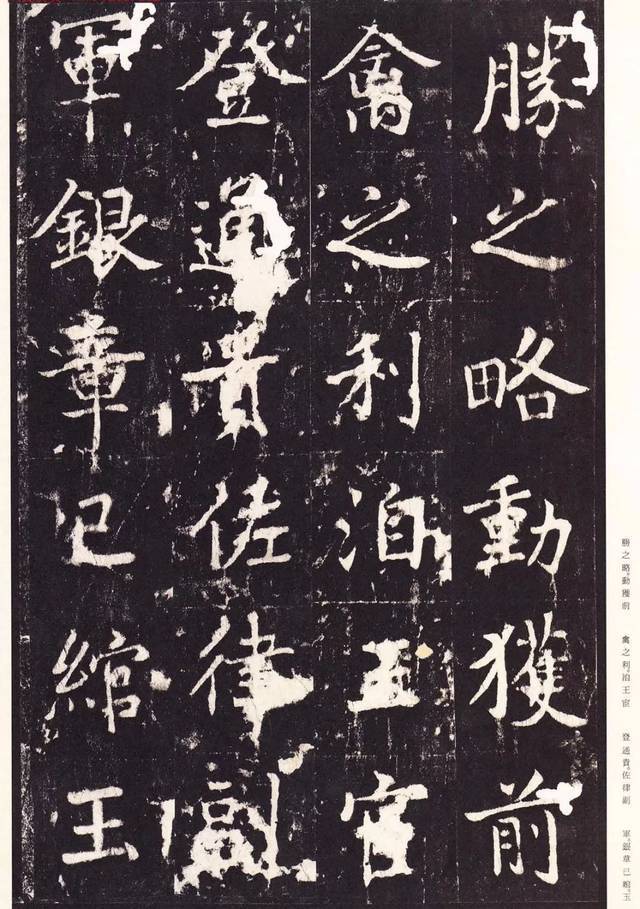 勝之略動獲前
禽之利洎王官
登通貴佐律副
軍銀章已綰玉
勝之略。動獲前
禽之利。洎王宦
登通貴。佐律副
軍。銀章已綰。玉